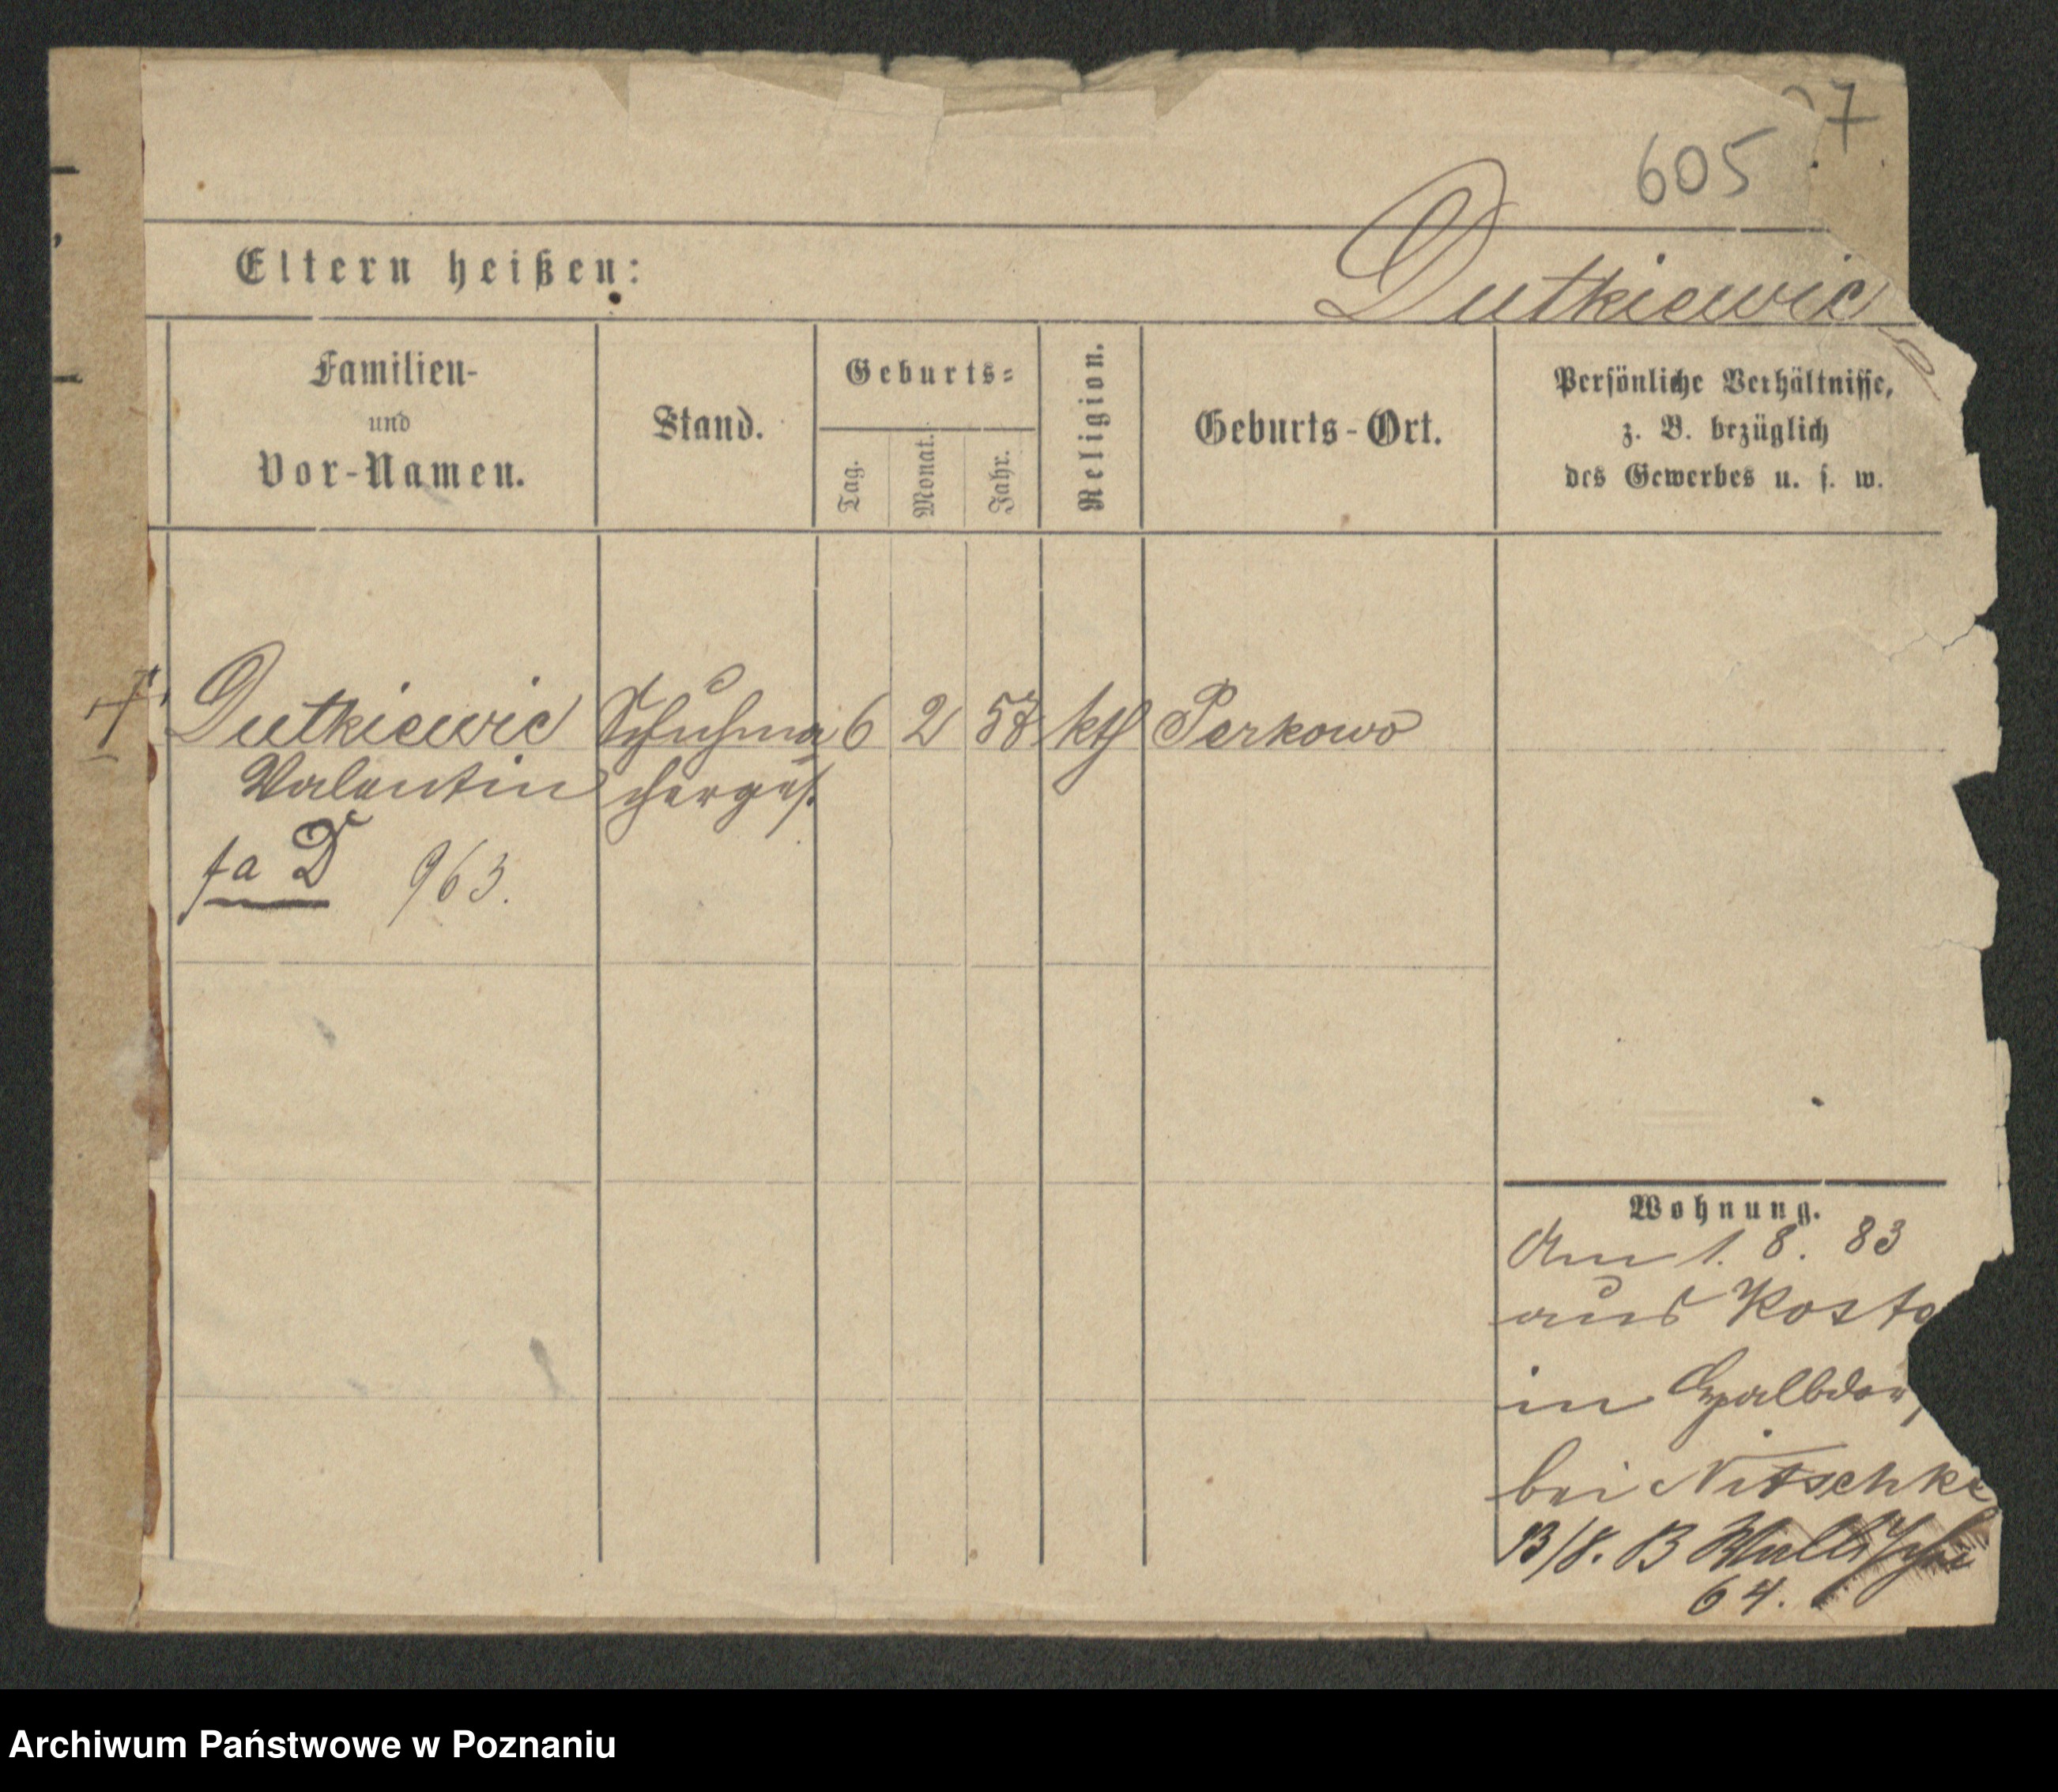 7
605
Eltern heißen:
Dutkiewic
Familien-
und
Vor-Namen.
Stand.
Geburts-
Tag.
Monat.
Jahr.
Religion.
Geburts-Ort.
Persönliche Verhältnisse,
z. B. bezüglich
des Gewerbes u. s. w.
Dutkiewic Schuhma 6 2 57 kth Perkowo
Valentin cherges.
fa D 963.
Wohnung.
Am 1. 8. 83
aus Kosto
in
bei Nitschke
13/8. B Wallische
64.
Archiwum Państwowe w Poznaniu